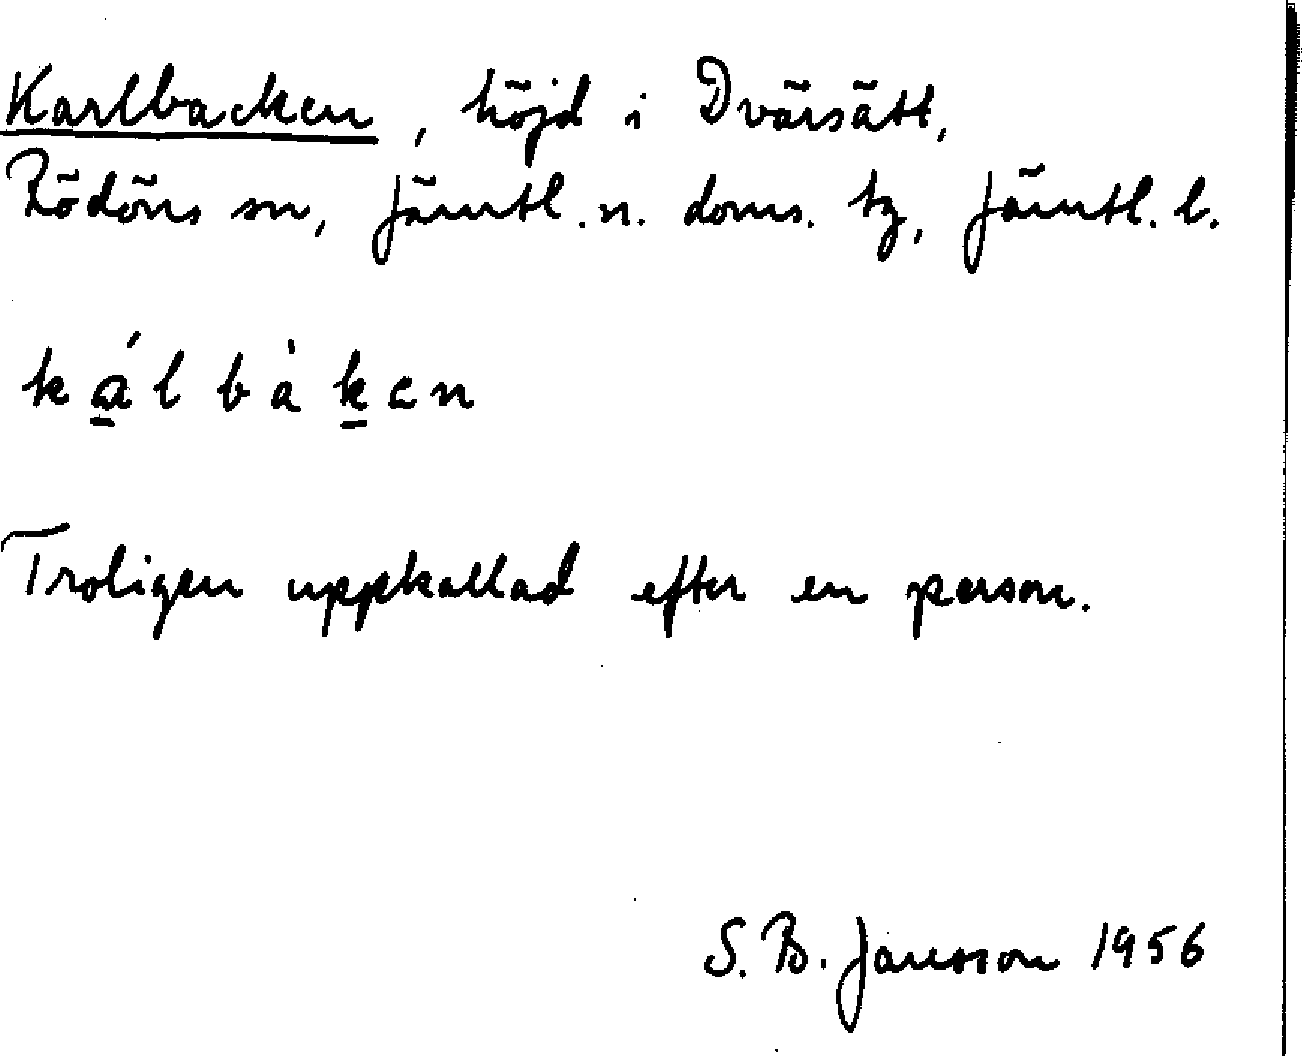 Karlbacken, höjd i Dvärsätt,
Rödöns sn, Jämtl. n. doms. tg, Jämtl. l.
ká̱l bàḵen
Troligen uppkallad efter en person.
S. B. Jansson 1956